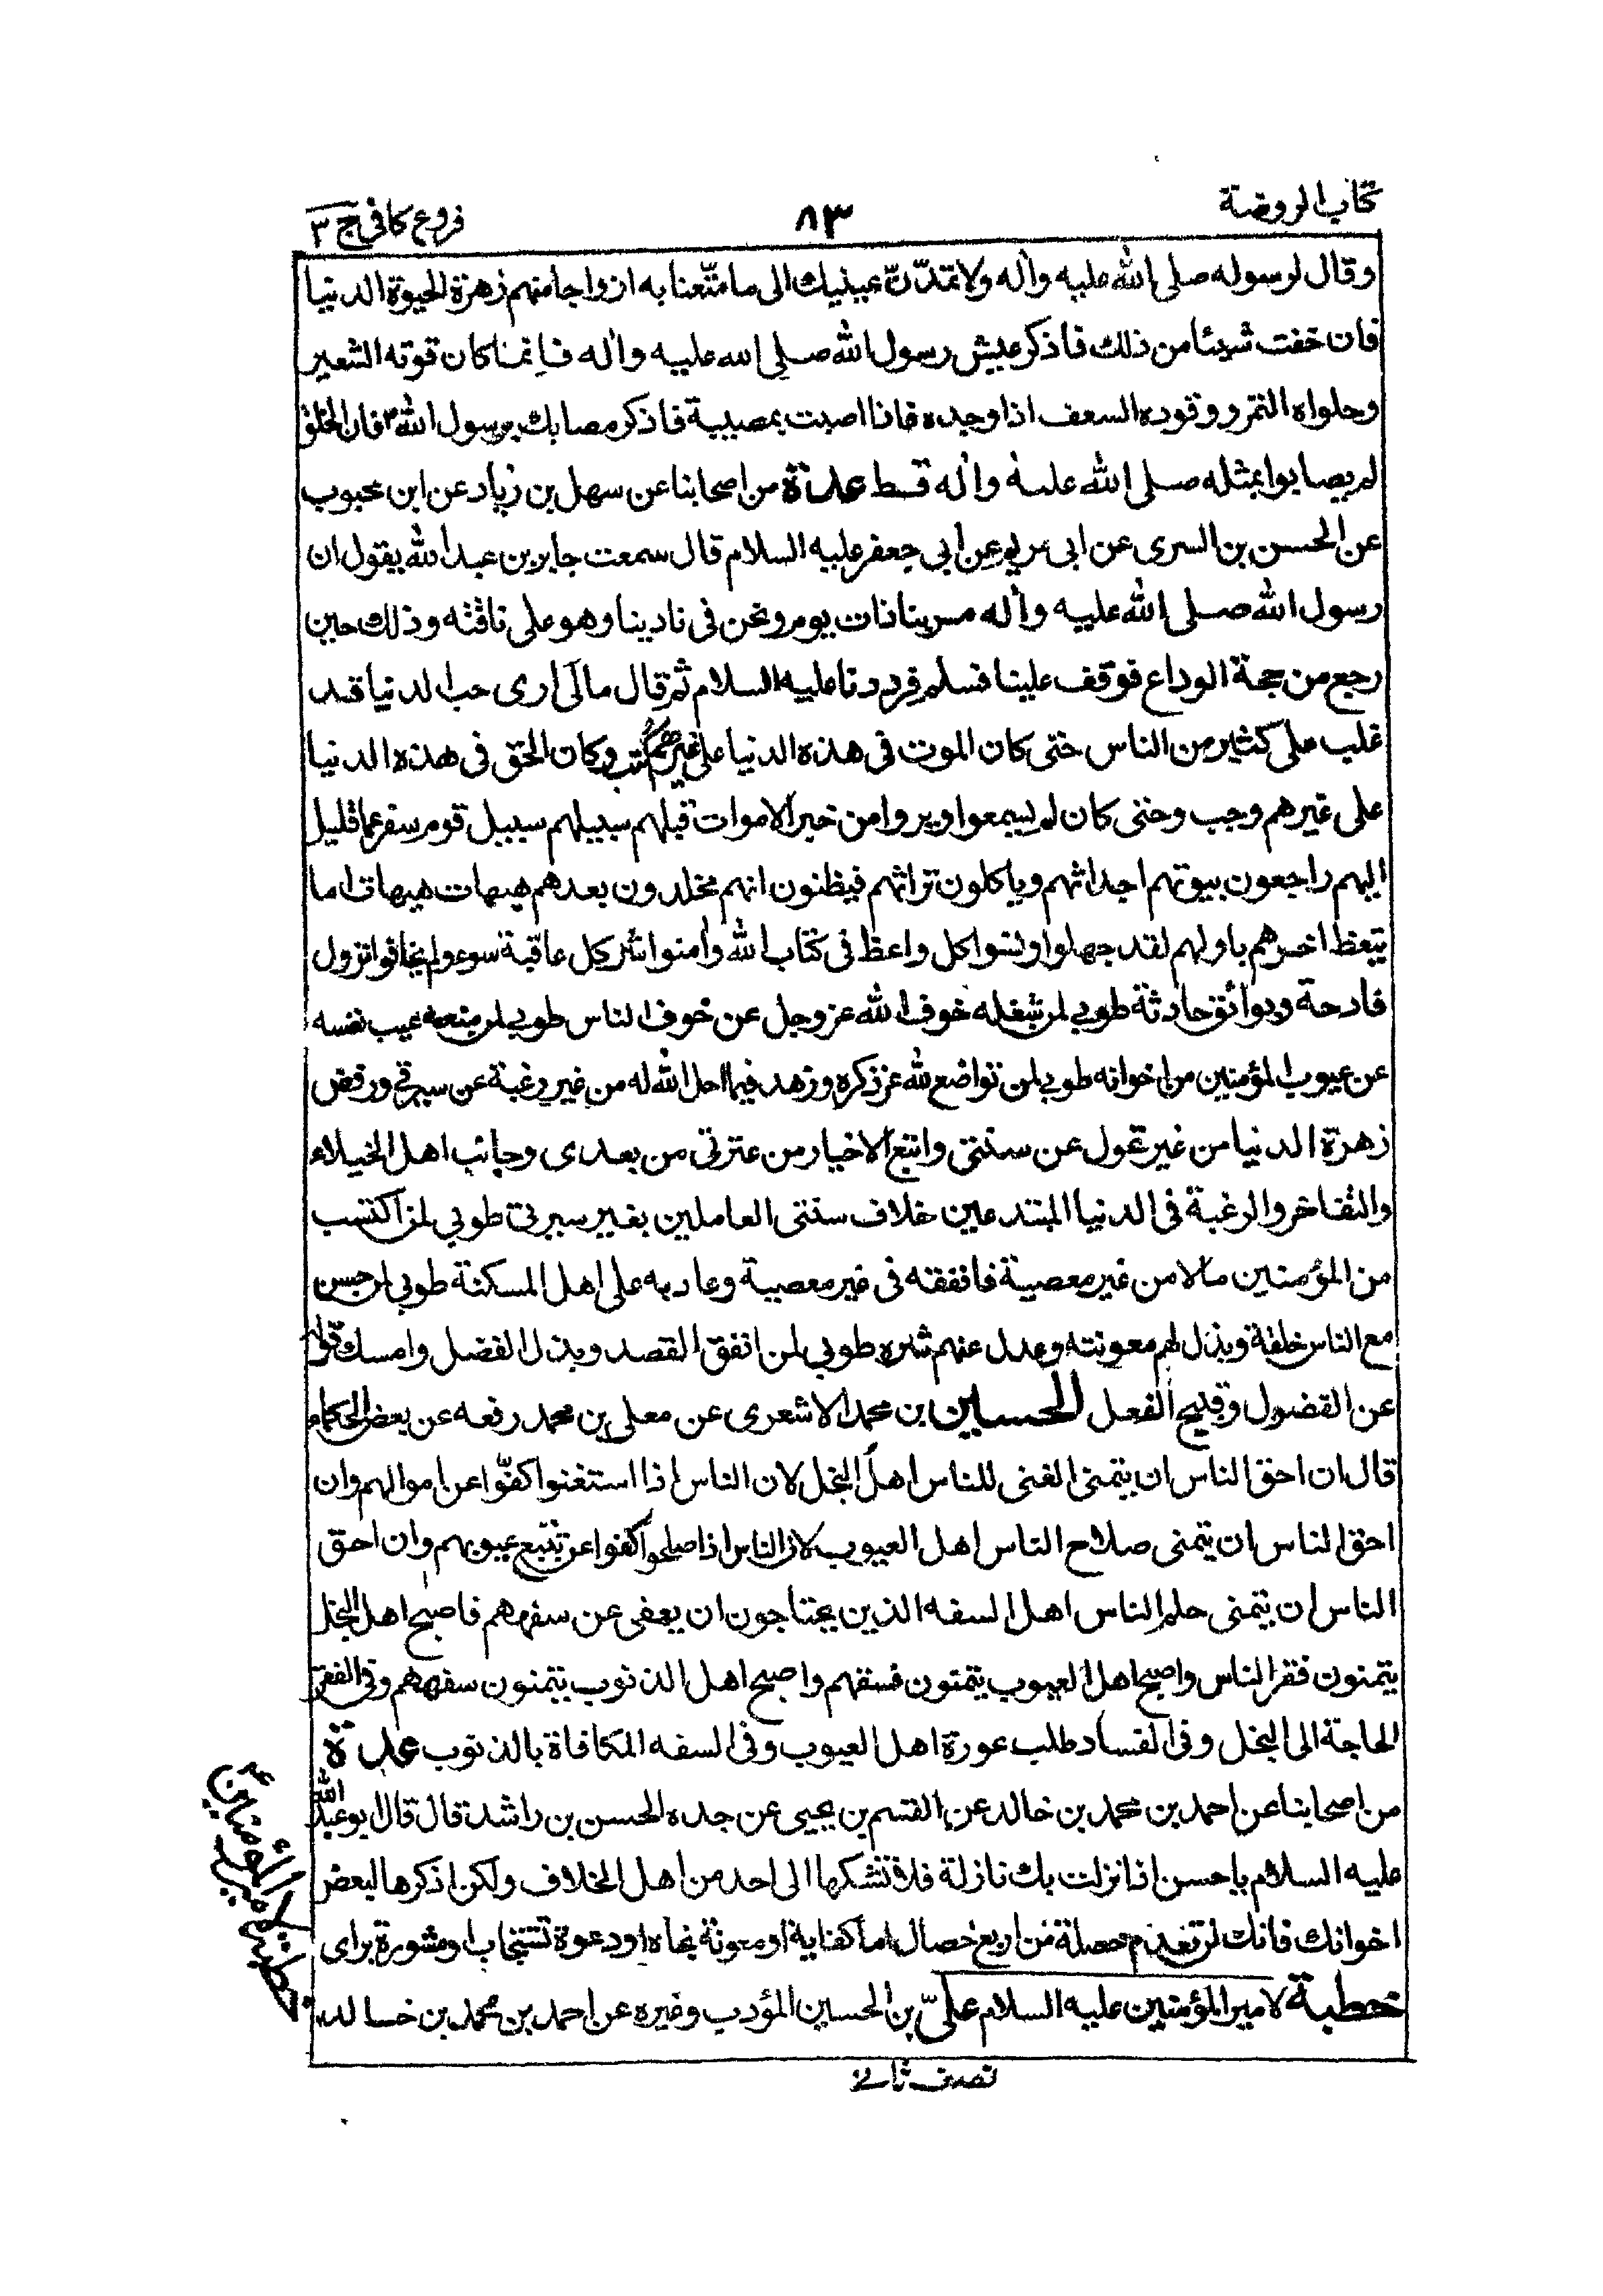 كتاب الروضة
٨٣
فروع كافي ج ٣
وقال لرسوله صلى الله عليه وآله ولا تمدّنّ عينيك الى ما متّعنا به ازواجا منهم زهرة الحيوة الدنيا
فان خفت شيئا من ذلك فاذكر عيش رسول الله صلى الله عليه واله فانما كان قوته الشعير
وحلواه التمر ووقوده السعف اذا وجده فاذا اصبت بمصيبة فاذكر مصابك برسول الله ص فان الخلق
لم يصابوا بمثله صلى الله عليه واله قط عدة من اصحابنا عن سهل بن زياد عن ابن محبوب
عن الحسن بن السرى عن ابى مريم عن ابي جعفر عليه السلام قال سمعت جابر بن عبد الله يقول ان
رسول الله صلى الله عليه واله مر بنا ذات يوم ونحن فى نادينا وهو على ناقته وذلك حين
رجع من حجة الوداع فوقف علينا فسلم فرددنا عليه السلام ثم قال مالى ارى حب الدنيا قد
غلب على كثير من الناس حتى كان الموت فى هذه الدنيا على غيرهم كتب وكان الحق فى هذه الدنيا
على غيرهم وجب وحتى كان لم يسمعوا ويروا من خبر الاموات قبلهم سبيلهم سبيل قوم سفر عما قليل
اليهم راجعون بيوتهم اجداثهم وياكلون تراثهم فيظنون انهم مخلدون بعدهم هيهات هيهات اما
يتعظ اخرهم باولهم لقد جهلوا ونسوا كل واعظ فى كتاب الله وامنوا شر كل عاقبة سوء ولم يخافوا نزول
فادحة وبوائق حادثة طوبي لمن شغله خوف الله عز وجل عن خوف الناس طوبي لمن منعه عيب نفسه
عن عيوب المؤمنين من اخوانه طوبي لمن تواضع لله عز ذكره وزهد فيما احل الله له من غير رغبة عن سيرتي ورفض
زهرة الدنيا من غير تحول عن سنتى واتبع الاخيار من عترتي من بعدى وجانب اهل الخيلاء
والتفاخر والرغبة فى الدنيا المبتدعين خلاف سنتى العاملين بغير سيرتي طوبي لمن اكتسب
من المؤمنين مالا من غير معصية فانفقه فى غير معصية وعاد به على اهل المسكنة طوبي لمن حسن
مع الناس خلقه وبذل لهم معونته وعدل عنهم شره طوبي لمن انفق القصد وبذل الفضل وامسك قوله
عن الفضول وقبيح الفعل الحسين بن محمد الاشعرى عن معلى بن محمد رفعه عن بعض الحكماء
قال ان احق الناس ان يتمنى الغنى للناس اهل البخل لان الناس اذا استغنوا كفّوا عن اموالهم وان
احق الناس ان يتمنى صلاح الناس اهل العيوب لان الناس اذا صلحوا كفوا عن تتبع عيوبهم وان احق
الناس ان يتمنى حلم الناس اهل السفه الذين يحتاجون ان يعفى عن سفههم فاصبح اهل البخل
يتمنون فقر الناس واصبح اهل العيوب يتمنون فسقهم واصبح اهل الذنوب يتمنون سفههم وفى الفقر
الحاجة الى البخل وفى الفساد طلب عورة اهل العيوب وفى السفه المكافاة بالذنوب عدة
من اصحابنا عن احمد بن محمد بن خالد عن القسم بن يحيى عن جده الحسن بن راشد قال قال ابو عبد الله
عليه السلام يا حسن اذا نزلت بك نازلة فلا تشكها الى احد من اهل الخلاف ولكن اذكرها لبعض
اخوانك فانك لن تعدم خصلة من اربع خصال اما كفاية او معونة بجاه او دعوة تستجاب او مشورة براى
خطبة لامير المؤمنين عليه السلام علىّ بن الحسين المؤدب وغيره عن احمد بن محمد بن خالد
خطبة لامير المؤمنين ع